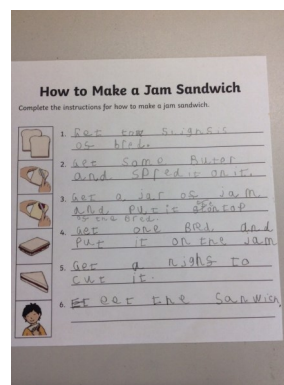 How to Make a Jam Sandwich
Complete the instructions for how to make a jam sandwich.
1. Get the
of bred.
2. Get some Buter
and spred it on it.
3. Get a jar of jam
and put it ontop
of the bred.
4. Get one Bred and
put it on the jam
5. Get a to
cut it.
6. eet the sanwich